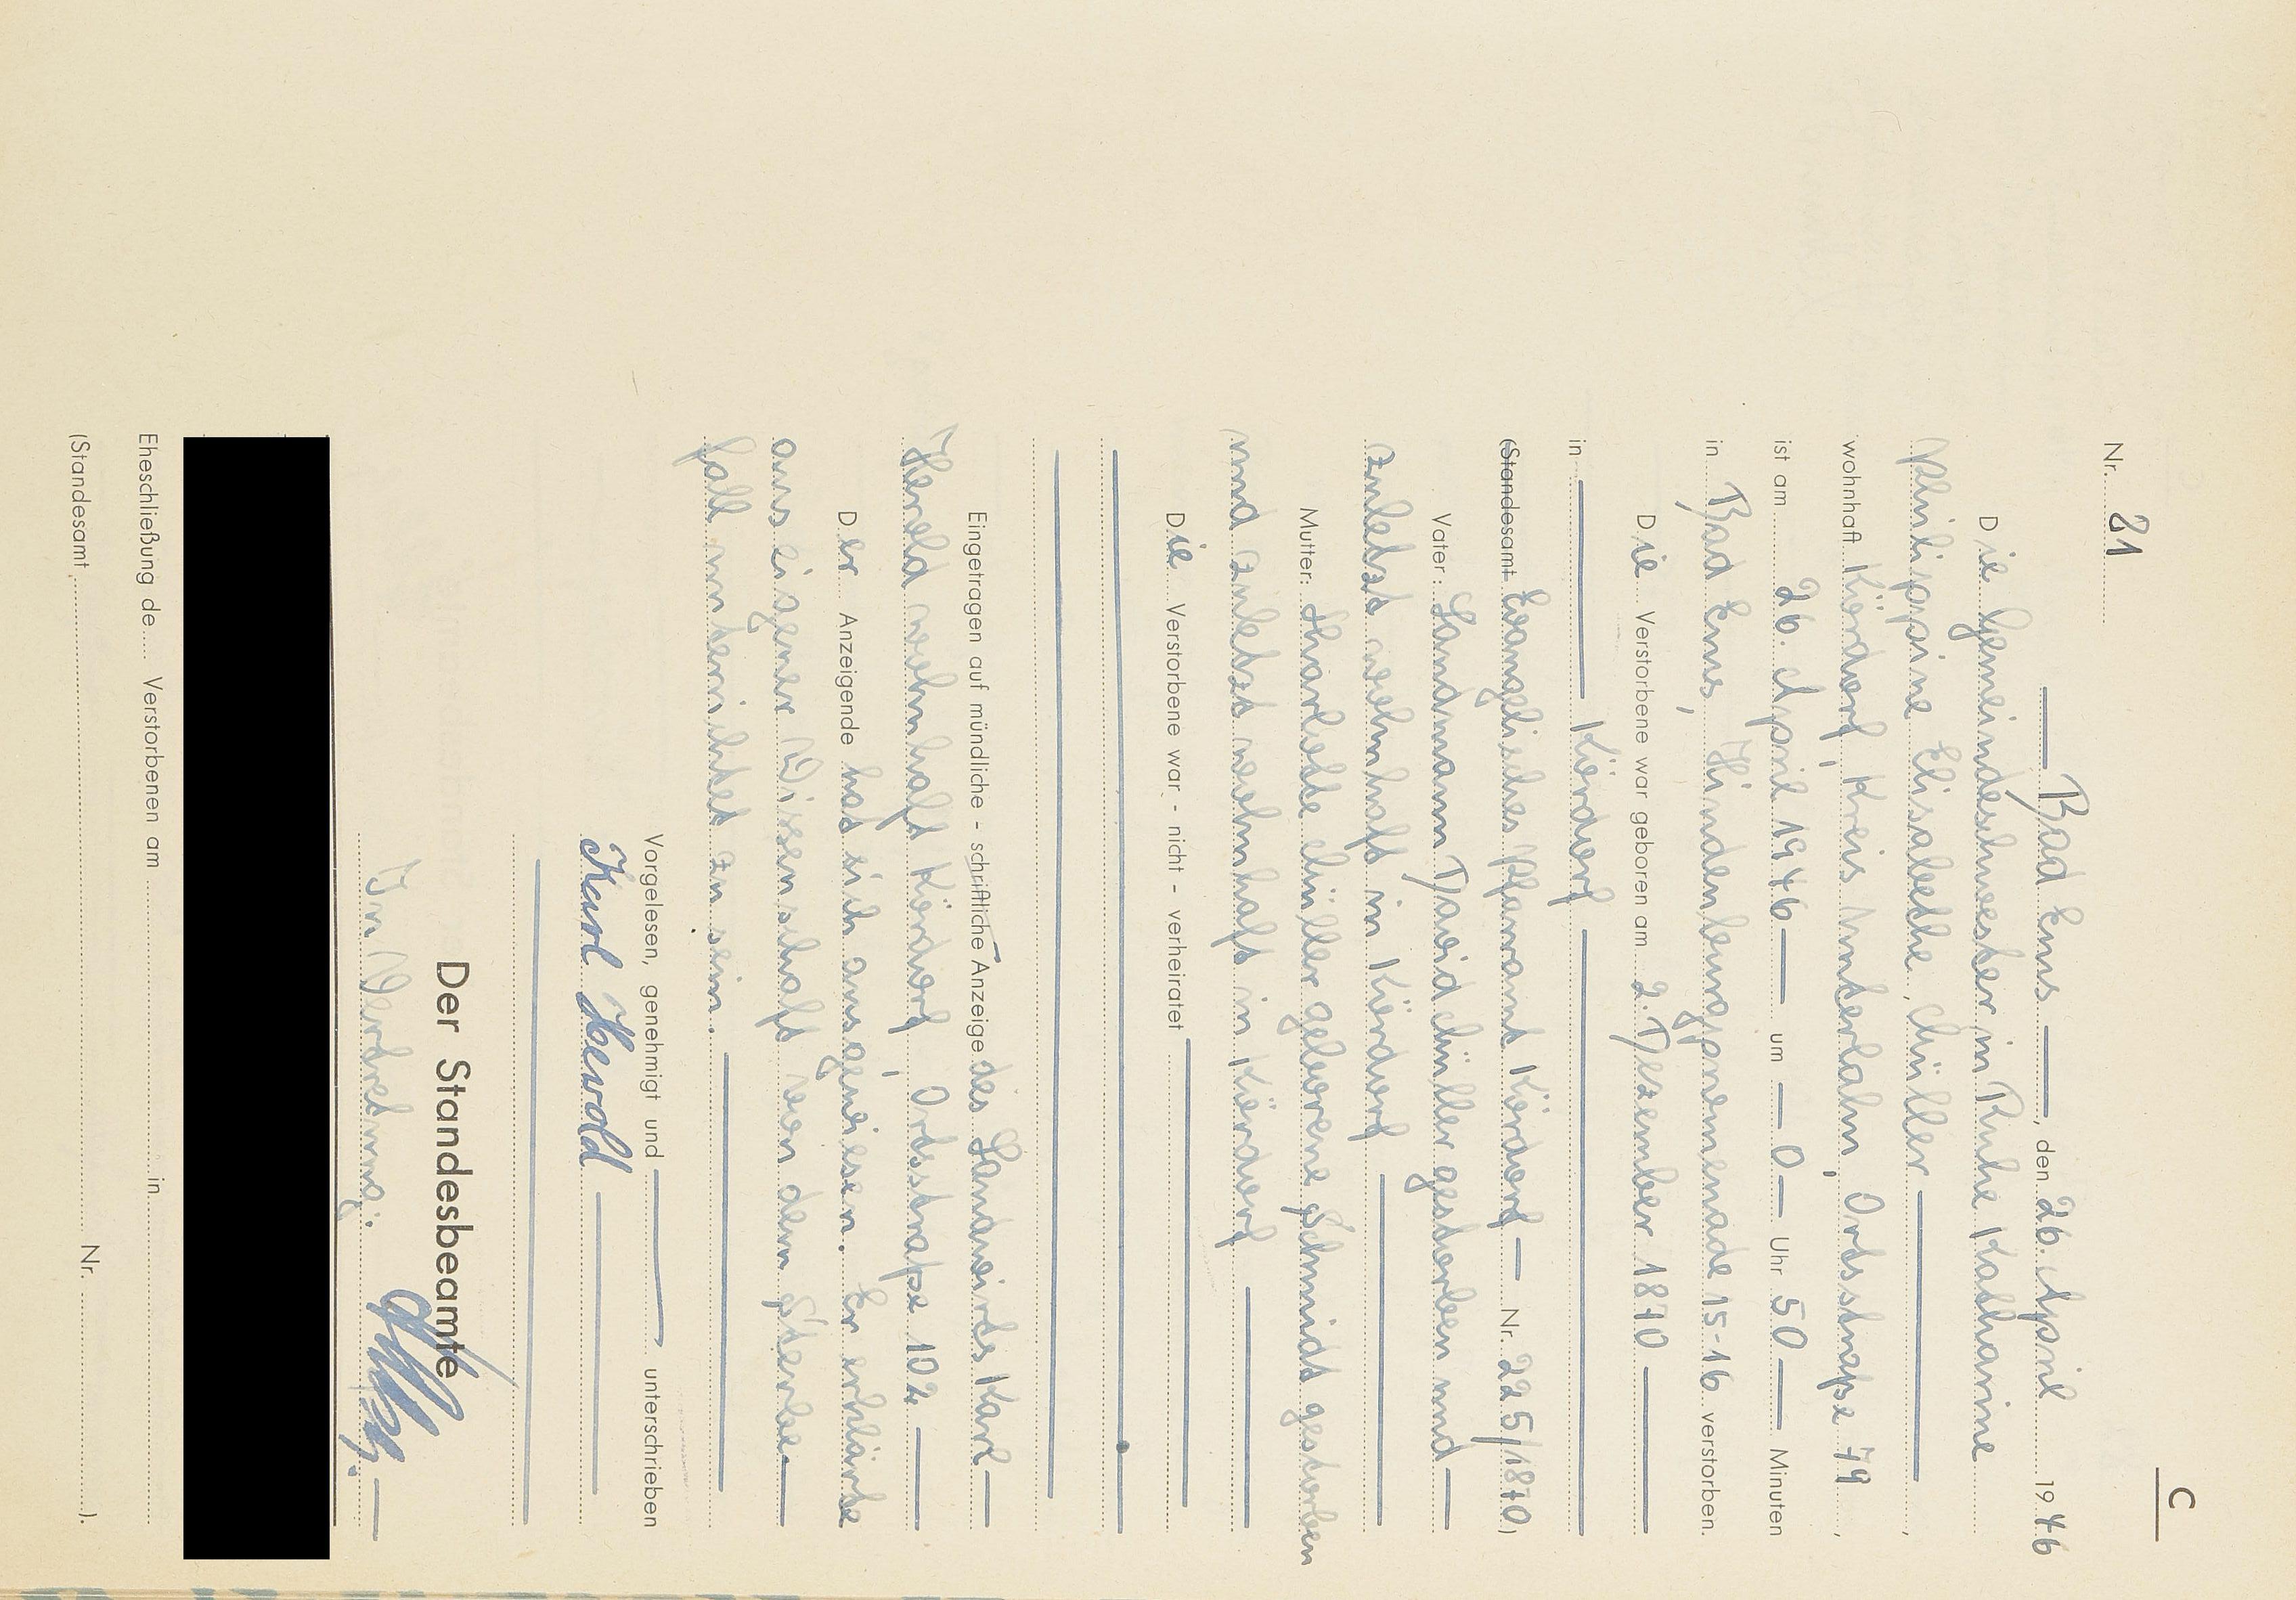 C
Nr. 21
Bad Ems, den 26. April 1946
Die Gemeindeschwester in Ruhe Katharine
Philippine Elisabethe Müller,
wohnhaft Kördorf, Kreis Unterlahn, Ortsstraße 79,
ist am 26. April 1946 um 0 Uhr 50 Minuten
in Bad Ems, Hindenburgpromenade 15-16 verstorben.
Die Verstorbene war geboren am 2. Dezember 1870
in Kördorf
(Standesamt Evangelisches Pfarramt Kördorf Nr. 225/1870)
Vater: Landmann David Müller gestorben und
zuletzt wohnhaft in Kördorf
Mutter: Charlotte Müller geborene Schmidt gestorben
und zuletzt wohnhaft in Kördorf
Die Verstorbene war - nicht - verheiratet
Eingetragen auf mündliche - schriftliche Anzeige des Landwirts Karl
Herold wohnhaft Kördorf, Ortsstraße 102
Der Anzeigende hat sich ausgewiesen. Er erklärte
aus eigener Wissenschaft von dem Sterbe-
fall unterrichtet zu sein.
Vorgelesen, genehmigt und unterschrieben
Karl Herold
Der Standesbeamte
In Vertretung:
Eheschließung de Verstorbenen am in
(Standesamt Nr. ).